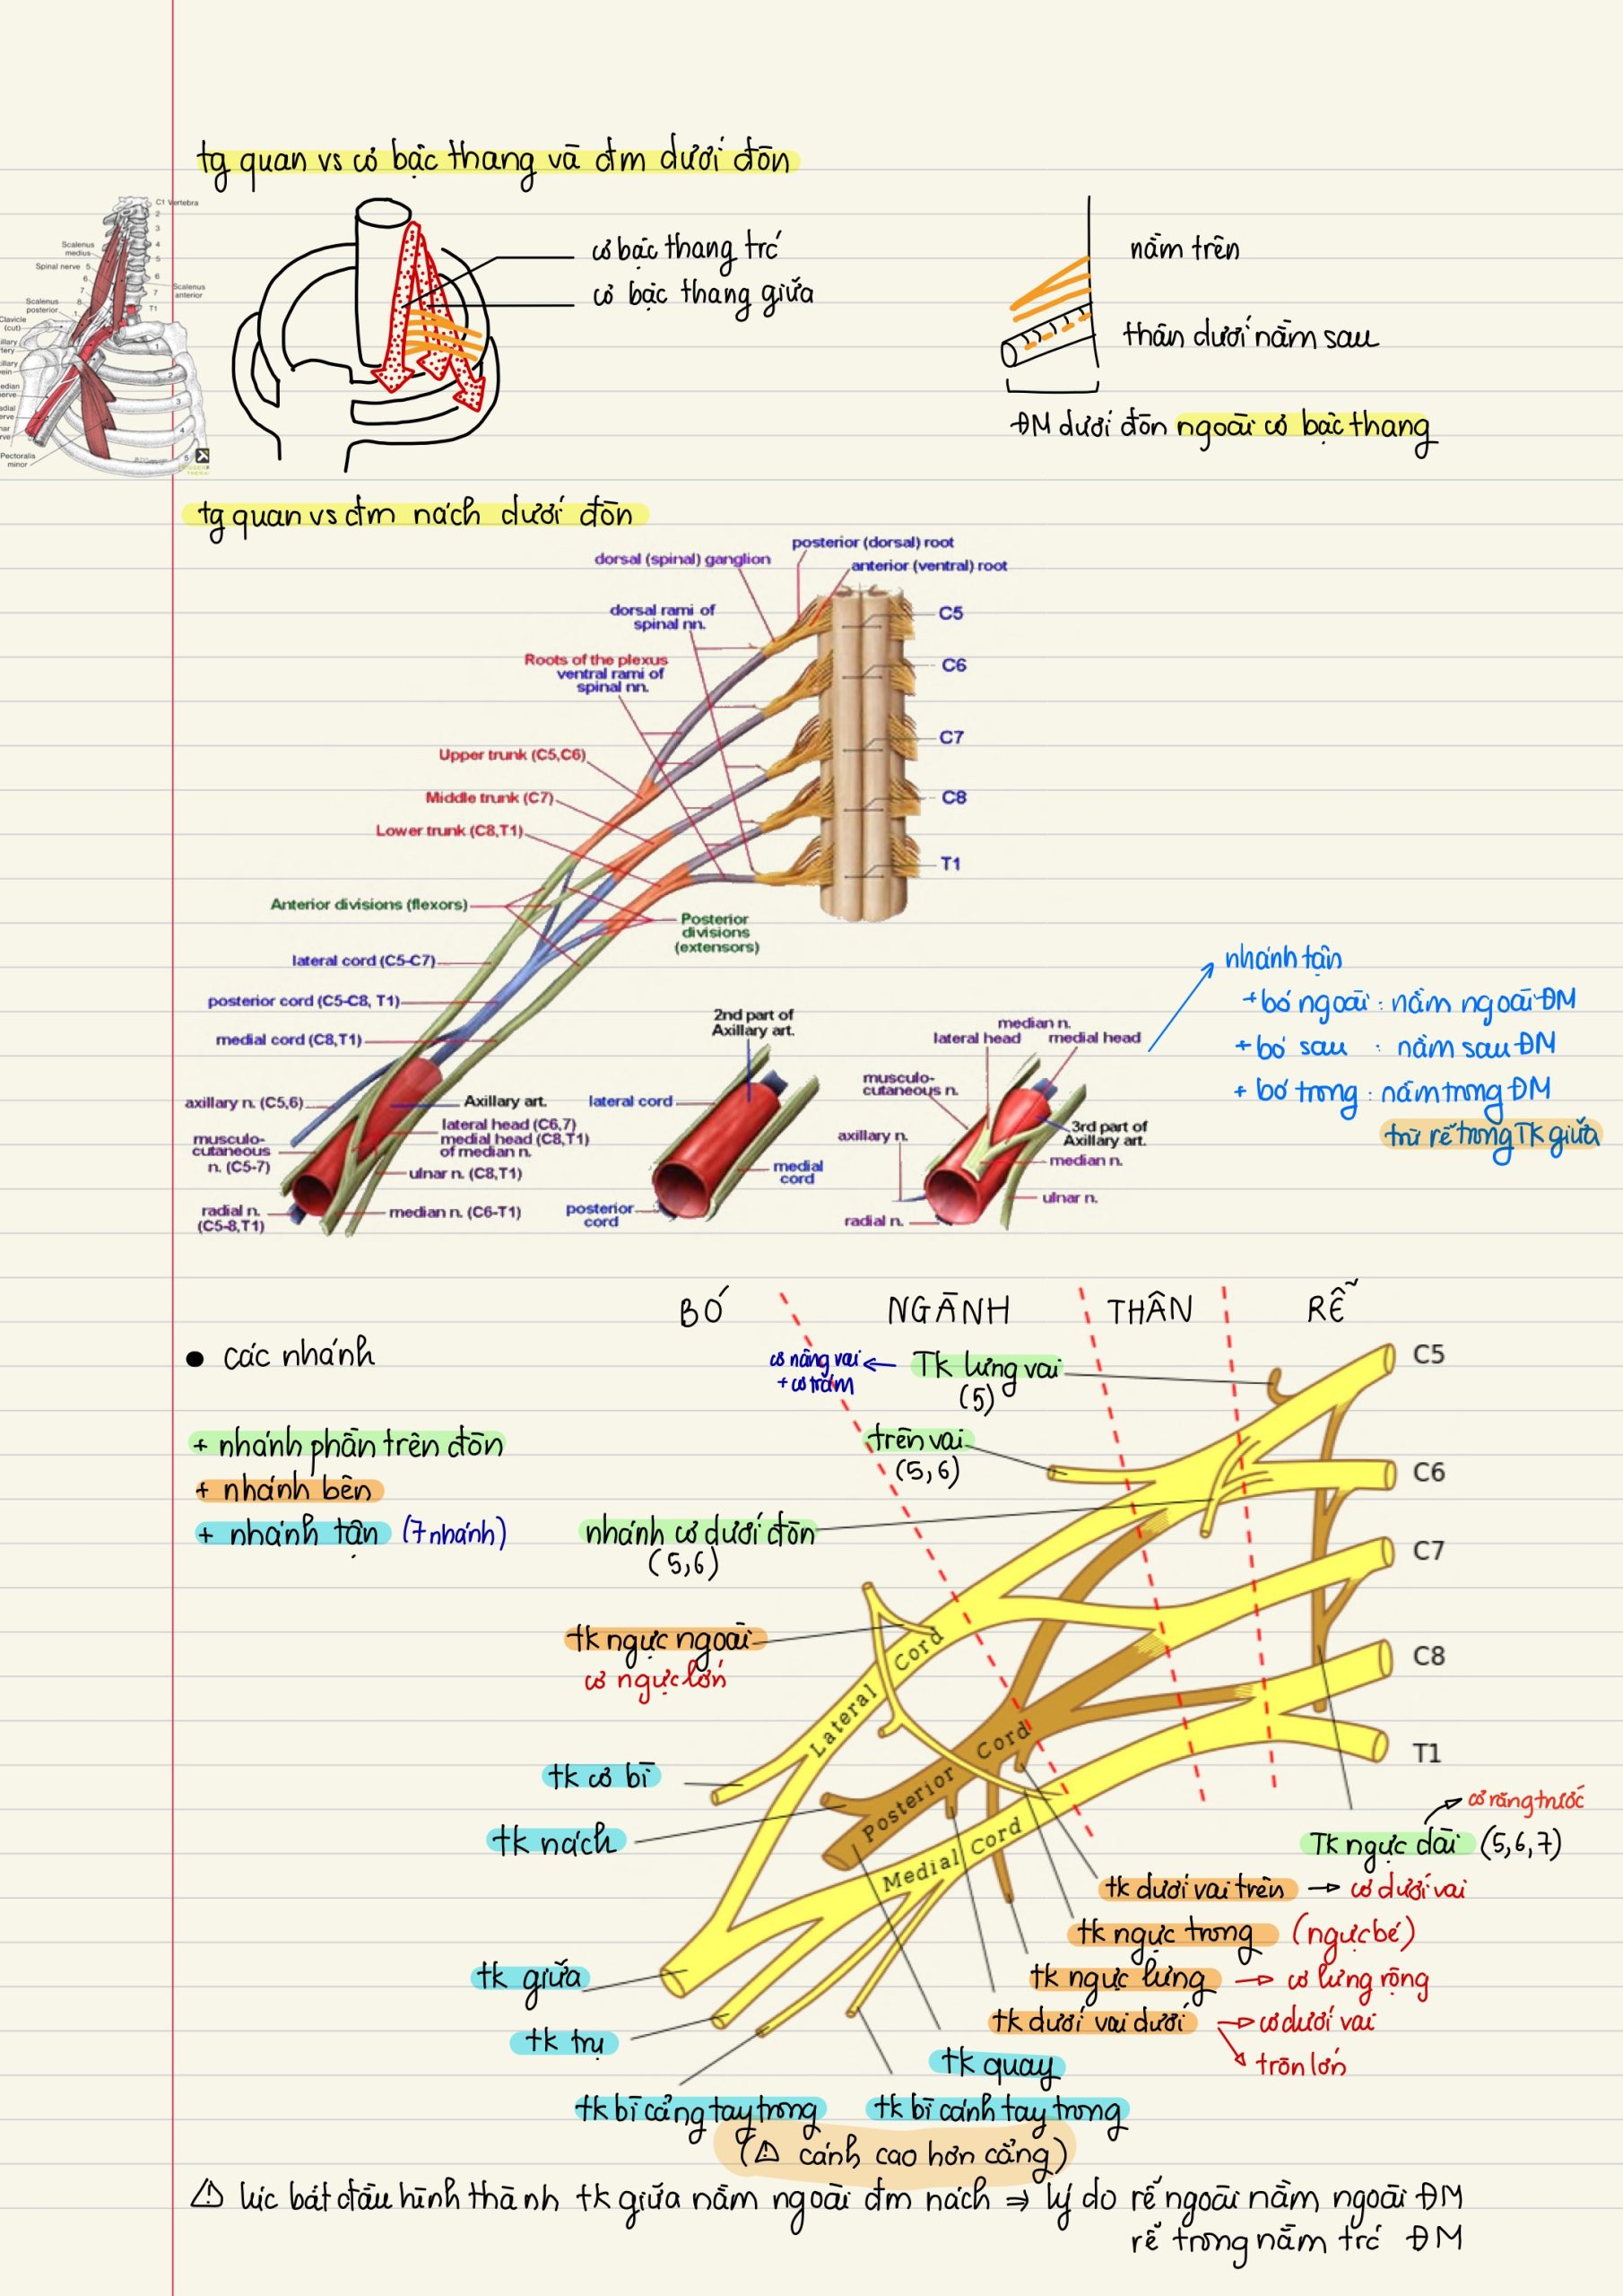 tg quan vs cơ bậc thang và đm dưới đòn
C1 Vertebra
2
3
4
5
6
7
T1
Scalenus
medius
Spinal nerve 5
6
7
8
1
Scalenus
anterior
Scalenus
posterior
Clavicle
(cut)
Pectoralis
minor
1
2
3
4
5
cơ bậc thang trc
cơ bậc thang giữa
nằm trên
thân dưới nằm sau
ĐM dưới đòn ngoài cơ bậc thang
tg quan vs đm nách dưới đòn
posterior (dorsal) root
dorsal (spinal) ganglion
anterior (ventral) root
dorsal rami of
spinal nn.
Roots of the plexus
ventral rami of
spinal nn.
C5
C6
C7
C8
T1
Upper trunk (C5,C6)
Middle trunk (C7)
Lower trunk (C8,T1)
Anterior divisions (flexors)
Posterior
divisions
(extensors)
lateral cord (C5-C7)
posterior cord (C5-C8, T1)
medial cord (C8,T1)
axillary n. (C5,6)
musculo-
cutaneous
n. (C5-7)
radial n.
(C5-8,T1)
Axillary art.
lateral head (C6,7)
medial head (C8,T1)
of median n.
ulnar n. (C8,T1)
median n. (C6-T1)
2nd part of
Axillary art.
lateral cord
medial
cord
posterior
cord
median n.
lateral head
medial head
musculo-
cutaneous n.
axillary n.
3rd part of
Axillary art.
median n.
ulnar n.
radial n.
nhánh tận
+ bó ngoài : nằm ngoài ĐM
+ bó sau : nằm sau ĐM
+ bó trong : nằm trong ĐM
trừ rễ trong TK giữa
BÓ
NGÀNH
THÂN
RỄ
• các nhánh
+ nhánh phần trên đòn
+ nhánh bên
+ nhánh tận (7 nhánh)
cơ nâng vai
+ cơ trám
Tk lưng vai
(5)
trên vai
(5,6)
nhánh cơ dưới đòn
(5,6)
C5
C6
C7
C8
T1
tk ngực ngoài
cơ ngực lớn
Lateral Cord
Posterior Cord
Medial Cord
tk cơ bì
tk nách
cơ răng trước
Tk ngực dài (5,6,7)
tk dưới vai trên → cơ dưới vai
tk ngực trong (ngực bé)
tk giữa
tk ngực lưng → cơ lưng rộng
tk dưới vai dưới → cơ dưới vai
tròn lớn
tk trụ
tk quay
tk bì cẳng tay trong
tk bì cánh tay trong
(⚠ cánh cao hơn cẳng)
⚠ lúc bắt đầu hình thành tk giữa nằm ngoài đm nách ⇒ lý do rễ ngoài nằm ngoài ĐM
rễ trong nằm trc ĐM